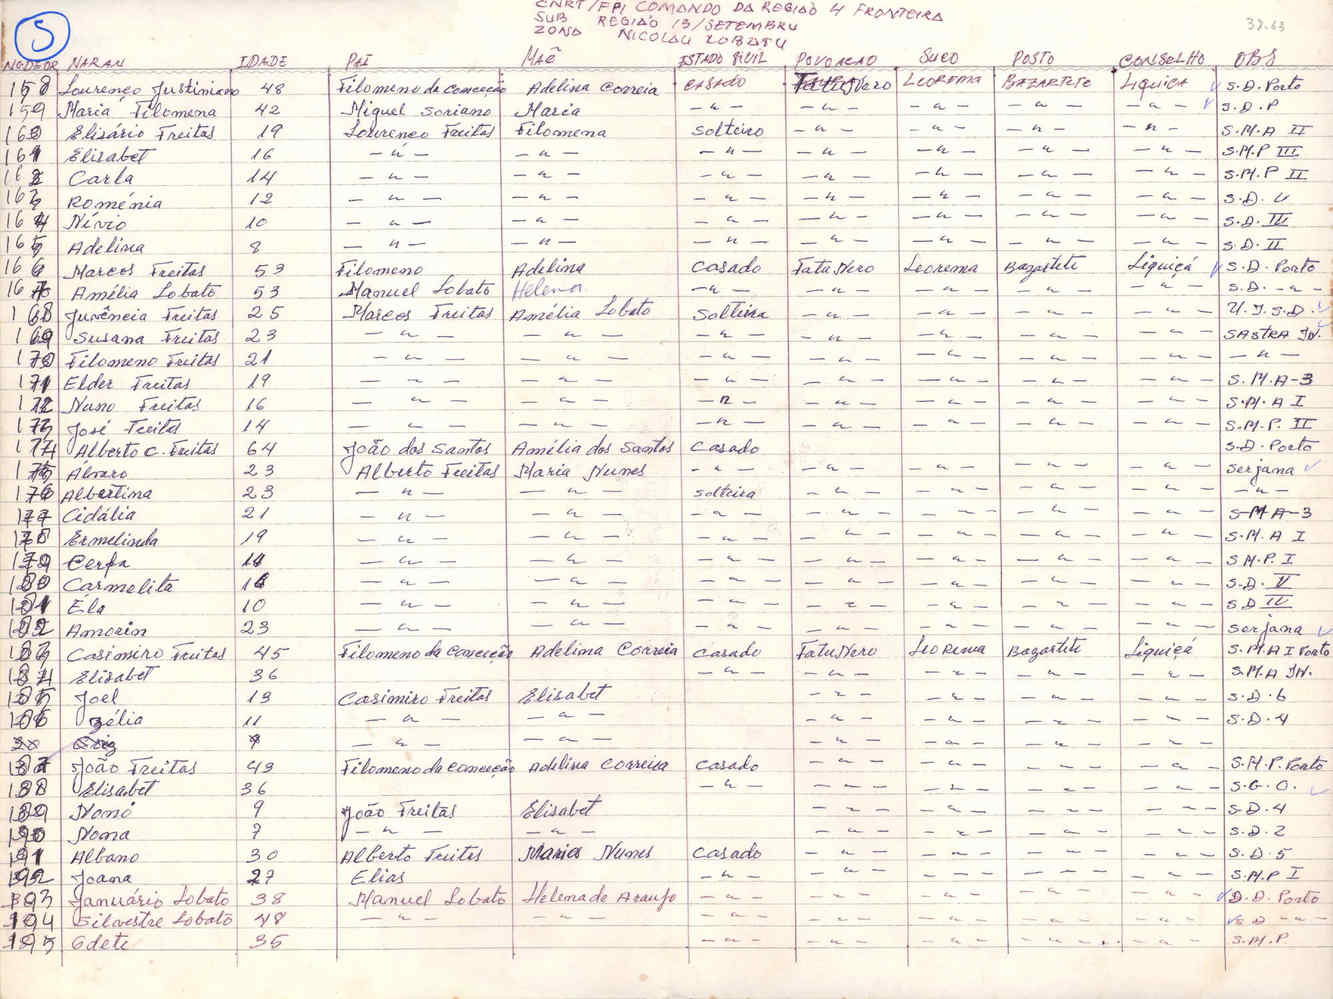 5
CNRT/FPI COMANDO DA REGIÃO 4 FRONTEIRA
SUB REGIÃO 13/SETEMBRU
ZONA NICOLAU LOBATU
32.63
NO DEOR NARAN IDADE PAI MAÊ ESTADO SIVIL POVOACAO SUCO POSTO CONSELHO OBS
158 Lourenço Justiniano 48 Filomeno da conceição Adelina Correia CASADO FatuNero LEOREMA BAZARTETE LIQUIÇA S.D. Porto
159 Maria Filomena 42 Miguel Soriano Maria -"- -"- -"- -"- -"- S.D.P
160 Elisário Freitas 19 Lourenco Freitas Filomena Solteiro -"- -"- -"- -"- S.M.A II
161 Elisabet 16 -"- -"- -"- -"- -"- -"- -"- S.M.P III
162 Carla 14 -"- -"- -"- -"- -"- -"- -"- S.M.P II
163 Roménia 12 -"- -"- -"- -"- -"- -"- -"- S.D. V
164 Nívio 10 -"- -"- -"- -"- -"- -"- -"- S.D. III
165 Adelina 8 -"- -"- -"- -"- -"- -"- -"- S.D. II
166 Marcos Freitas 53 Filomeno Adelina Casado FatuNero Leorema Bazartete Liquiçá S.D. Porto
167 Amélia Lobato 53 Manuel Lobato Helena -"- -"- -"- -"- -"- S.D. -"-
168 Juvência Freitas 25 Marcos Freitas Amélia Lobato Solteira -"- -"- -"- -"- U.J.S.D.
169 Susana Freitas 23 -"- -"- -"- -"- -"- -"- SASTRA IN.
170 Filomeno Freitas 21 -"- -"- -"- -"- -"- -"- -"- -"-
171 Elder Freitas 19 -"- -"- -"- -"- -"- -"- -"- S.M.A-3
172 Nuno Freitas 16 -"- -"- -"- -"- -"- -"- -"- S.M.A I
173 José Freitas 14 -"- -"- -"- -"- -"- -"- -"- S.M.P. II
174 Alberto C. Freitas 64 João dos Santos Amélia dos Santos Casado S.D. Porto
175 Álvaro 23 Alberto Freitas Maria Nunes -"- -"- -"- -"- -"- Serjana
176 Albertina 23 -"- -"- Solteira -"- -"- -"- -"- -"-
177 Cidália 21 -"- -"- -"- -"- -"- -"- -"- S-M A-3
178 Ermelinda 19 -"- -"- -"- -"- -"- -"- -"- S.M.A I
179 14 -"- -"- -"- -"- -"- -"- -"- S.M.P. I
180 Carmelita 16 -"- -"- -"- -"- -"- -"- -"- S.D. V
181 Ela 10 -"- -"- -"- -"- -"- -"- -"- S D IV
182 Amorim 23 -"- -"- -"- -"- -"- -"- -"- Serjana
183 Casimiro Freitas 45 Filomeno da conceição Adelima Correia Casado FatuNero Leorema Bazartete Liquiçá S.M.A I Porto
184 Elisabet 36 -"- -"- -"- -"- -"- S.M.A IN.
185 Joel 13 Casimiro Freitas Elisabet -"- -"- -"- -"- S.D. 6
186 Zélia 11 -"- -"- -"- -"- -"- -"- S.D. 4
-"- -"- -"- -"- -"- -"-
187 João Freitas 43 Filomeno da conceição Adelina Correia Casado -"- -"- -"- -"- S.M.P. Porto
188 Elisabet 36 -"- -"- -"- -"- -"- S.G.O.
189 Nomó 9 João Freitas Elisabet -"- -"- -"- -"- S.D. 4
190 Noma 7 -"- -"- -"- -"- -"- -"- S.D. 2
191 Albano 30 Alberto Freites Maria Nunes Casado -"- -"- -"- -"- S.D. 5
192 Joana 27 Elias -"- -"- -"- -"- -"- S.M.P I
193 Januário Lobato 38 Manuel Lobato Helena de Araujo -"- -"- -"- -"- -"- D.D. Porto
194 Silvestre Lobato 48 -"- -"- -"- -"- -"- -"- -"- S D -"-
195 Odete 35 -"- -"- -"- -"- -"- S.M.P